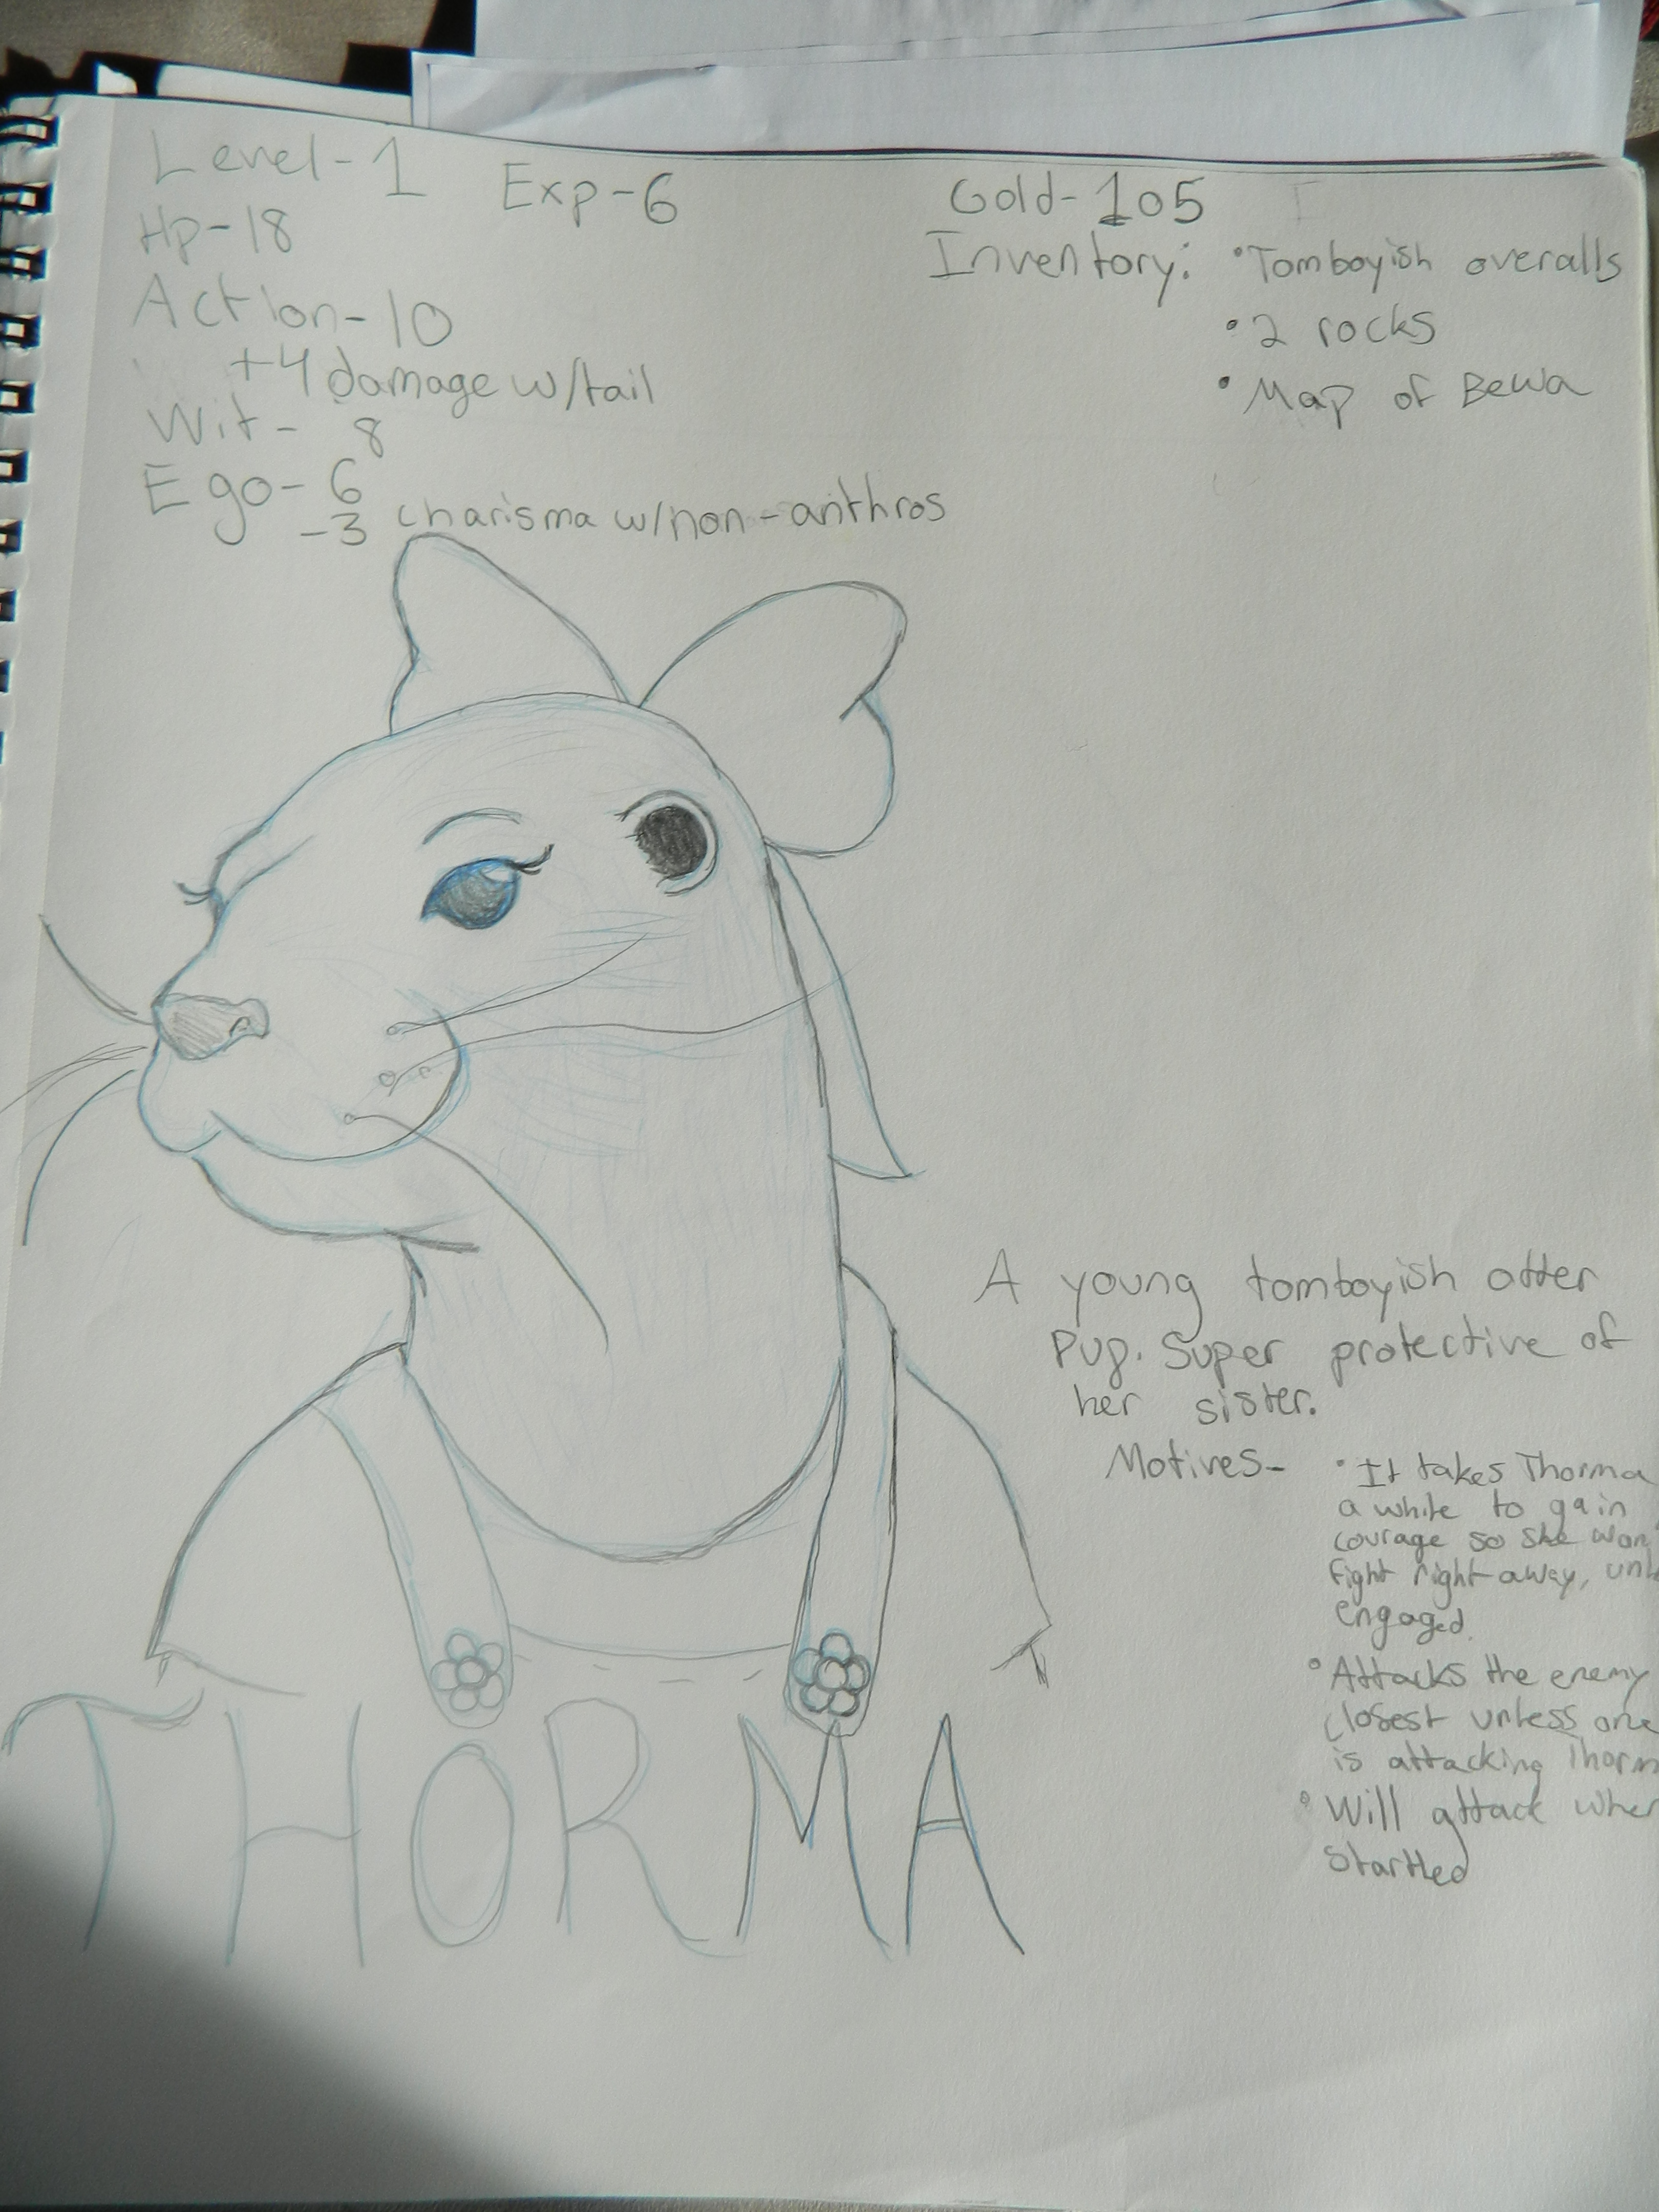 Level-1
Exp-6
Hp-18
Action-10
+4 damage w/tail
Wit- 8
Ego-6
-3 charisma w/non-anthros
Gold-105
Inventory: •Tomboyish overalls
•2 rocks
•Map of Bewa
A young tomboyish otter
Pup. Super protective of
her sister.
Motives- •It takes Thorma
a while to gain
courage so she
fight right away,
engaged.
•Attacks the enemy
closest unless one
is attacking
•Will attack
startled
THORMA